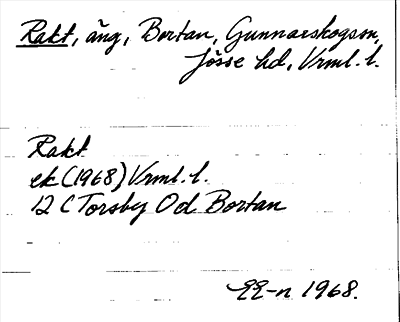 Rakt, äng, Bortan, Gunnarskogs sn,
Jösse hd, Vrml. l.
Rakt
ek (1968) Vrml. l.
12 C Torsby 0d Bortan
EE-n 1968.